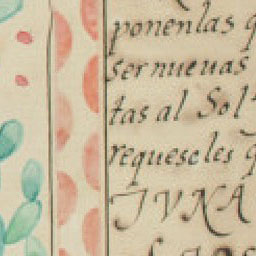 ponenlas q
ser nueuas
tas al Sol
requescles q
TVNA